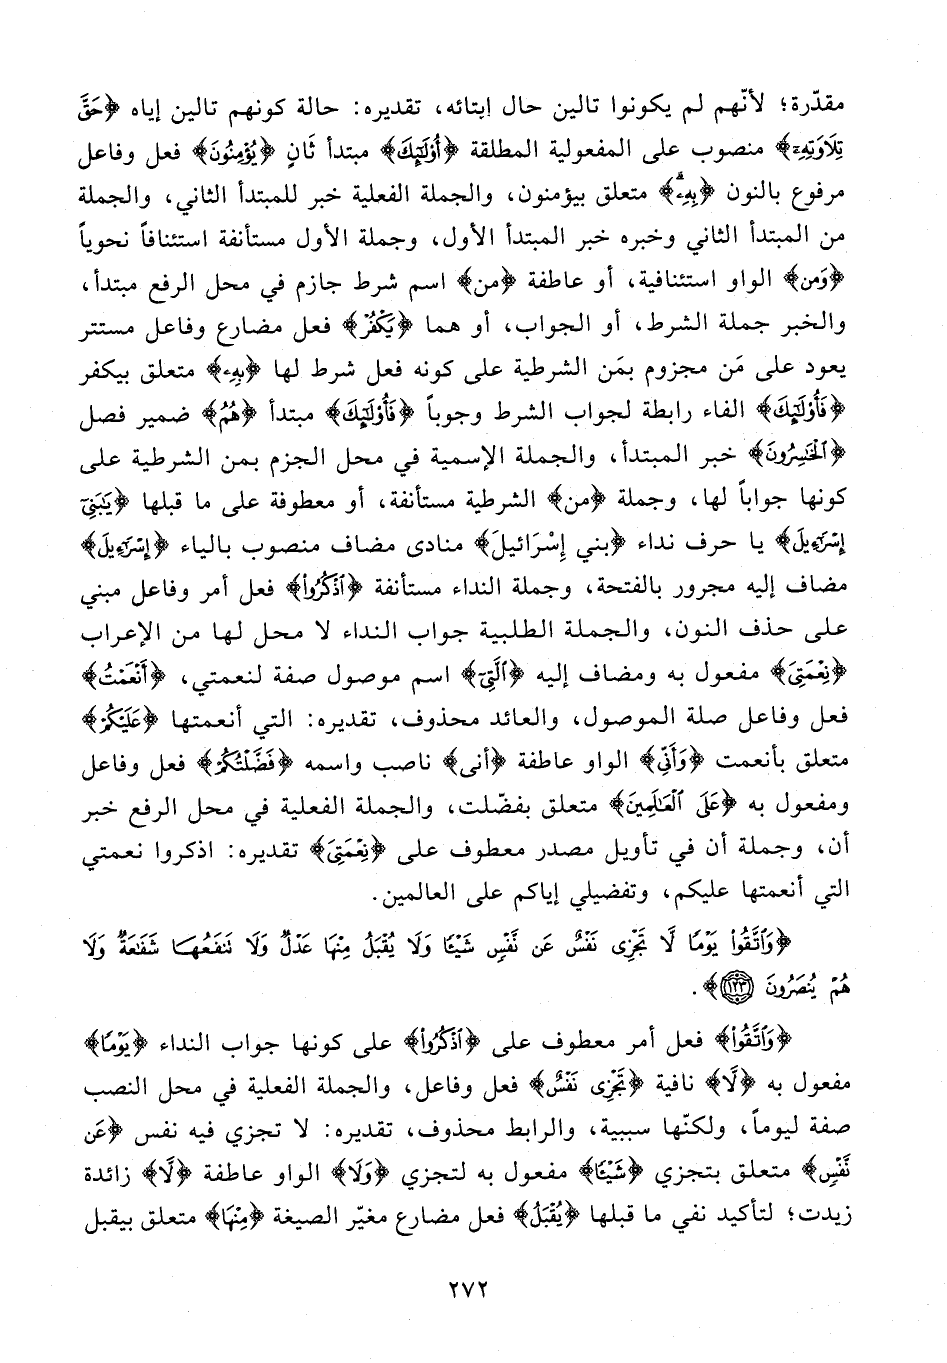 مقدّرة؛ لأنّهم لم يكونوا تالين حال إيتائه، تقديره: حالة كونهم تالين إياه ﴿حَقَّ
تِلَاوَتِهِۦ﴾ منصوب على المفعولية المطلقة ﴿أُوْلَٰٓئِكَ﴾ مبتدأ ثَانٍ ﴿يُؤْمِنُونَ﴾ فعل وفاعل
مرفوع بالنون ﴿بِهِۦ﴾ متعلق بيؤمنون، والجملة الفعلية خبر للمبتدأ الثاني، والجملة
من المبتدأ الثاني وخبره خبر المبتدأ الأول، وجملة الأول مستأنفة استئنافاً نحوياً
﴿وَمَن﴾ الواو استئنافية، أو عاطفة ﴿من﴾ اسم شرط جازم في محل الرفع مبتدأ،
والخبر جملة الشرط، أو الجواب، أو هما ﴿يَكْفُرْ﴾ فعل مضارع وفاعل مستتر
يعود على مَن مجزوم بمَن الشرطية على كونه فعل شرط لها ﴿بِهِۦ﴾ متعلق بيكفر
﴿فَأُوْلَٰٓئِكَ﴾ الفاء رابطة لجواب الشرط وجوباً ﴿فَأُوْلَٰٓئِكَ﴾ مبتدأ ﴿هُمُ﴾ ضمير فصل
﴿ٱلْخَٰسِرُونَ﴾ خبر المبتدأ، والجملة الإسمية في محل الجزم بمن الشرطية على
كونها جواباً لها، وجملة ﴿من﴾ الشرطية مستأنفة، أو معطوفة على ما قبلها ﴿يَٰبَنِىٓ
إِسْرَٰٓءِيلَ﴾ يا حرف نداء ﴿بني إِسْرَائيلَ﴾ منادى مضاف منصوب بالياء ﴿إِسْرَٰٓءِيلَ﴾
مضاف إليه مجرور بالفتحة، وجملة النداء مستأنفة ﴿ٱذْكُرُوا۟﴾ فعل أمر وفاعل مبني
على حذف النون، والجملة الطلبية جواب النداء لا محل لها من الإعراب
﴿نِعْمَتِىَ﴾ مفعول به ومضاف إليه ﴿ٱلَّتِىٓ﴾ اسم موصول صفة لنعمتي، ﴿أَنْعَمْتُ﴾
فعل وفاعل صلة الموصول، والعائد محذوف، تقديره: التي أنعمتها ﴿عَلَيْكُمْ﴾
متعلق بأنعمت ﴿وَأَنِّى﴾ الواو عاطفة ﴿أنى﴾ ناصب واسمه ﴿فَضَّلْتُكُمْ﴾ فعل وفاعل
ومفعول به ﴿عَلَى ٱلْعَٰلَمِينَ﴾ متعلق بفضّلت، والجملة الفعلية في محل الرفع خبر
أن، وجملة أن في تأويل مصدر معطوف على ﴿نِعْمَتِىَ﴾ تقديره: اذكروا نعمتي
التي أنعمتها عليكم، وتفضيلي إياكم على العالمين.
﴿وَٱتَّقُوا۟ يَوْمًا لَّا تَجْزِى نَفْسٌ عَن نَّفْسٍ شَيْـًٔا وَلَا يُقْبَلُ مِنْهَا عَدْلٌ وَلَا تَنفَعُهَا شَفَٰعَةٌ وَلَا
هُمْ يُنصَرُونَ ١٢٣﴾.
﴿وَٱتَّقُوا۟﴾ فعل أمر معطوف على ﴿ٱذْكُرُوا۟﴾ على كونها جواب النداء ﴿يَوْمًا﴾
مفعول به ﴿لَّا﴾ نافية ﴿تَجْزِى نَفْسٌ﴾ فعل وفاعل، والجملة الفعلية في محل النصب
صفة ليوماً، ولكنّها سببية، والرابط محذوف، تقديره: لا تجزي فيه نفس ﴿عَن
نَّفْسٍ﴾ متعلق بتجزي ﴿شَيْـًٔا﴾ مفعول به لتجزي ﴿وَلَا﴾ الواو عاطفة ﴿لَّا﴾ زائدة
زيدت؛ لتأكيد نفي ما قبلها ﴿يُقْبَلُ﴾ فعل مضارع مغيّر الصيغة ﴿مِنْهَا﴾ متعلق بيقبل
٢٧٢